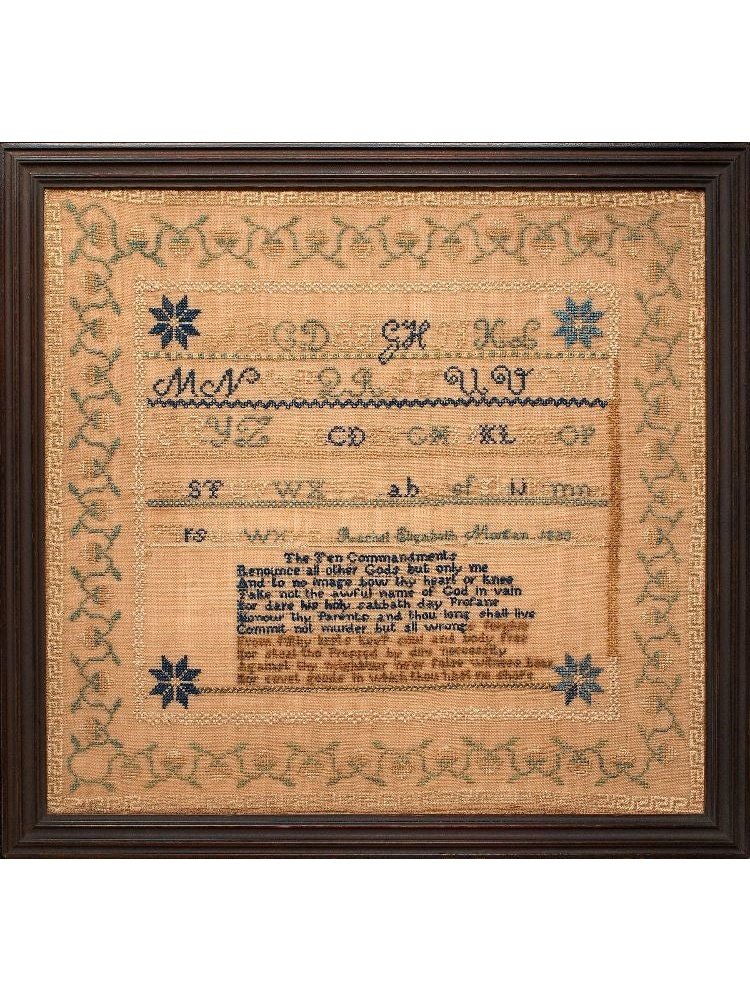 GD GH KL
MN QR UV
YZ CD GH KL OP
ST WX ab ef ij mn
rs wx Elizabeth
The Ten Commandments
Renounce all other Gods but only me
And to no image bow thy heart or knee
Take not the awful name of God in vain
Nor dare his holy sabbath day Profane
Honour thy Parents and thou long shall live
Commit not murder but all wrongs
From filthy lusts keep soul and body free
Nor steal tho Pressed by dire necessity
Against thy neighbour new false witness bear
Nor covet goods in which thou hast no share